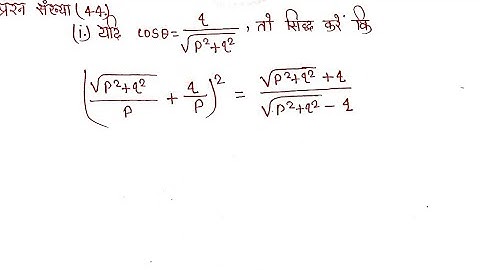 प्रश्न संख्या (4-4)
(i.) यदि cosθ = q/√(p²+q²), तो सिद्ध करें कि
(√(p²+q²)/p + q/p)² = (√(p²+q²) + q)/(√(p²+q²) - q)